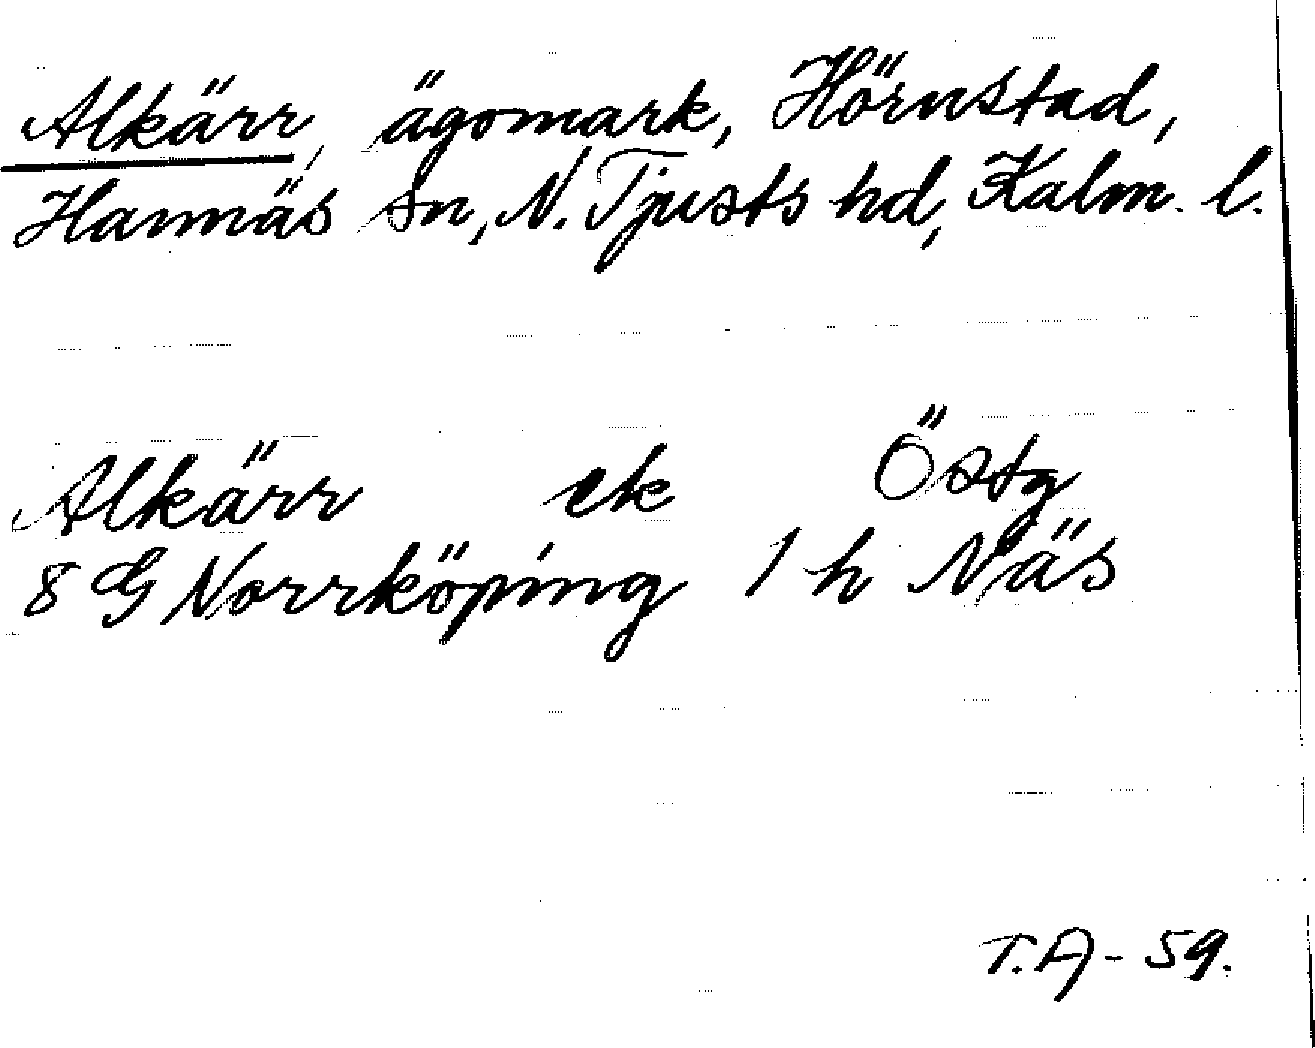 Alkärr, ägomark, Hörnstad,
Hannäs sn, N. Tjusts hd, Kalm. l.
Alkärr ek Östg
8 G Norrköping 1 h Näs
T.A - 59.